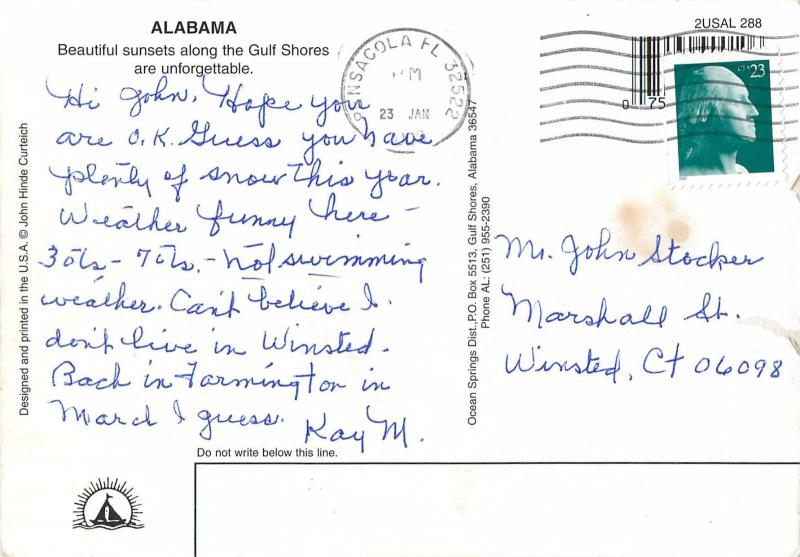 ALABAMA
Beautiful sunsets along the Gulf Shores
are unforgettable.
Hi John, Hope you
are O.K. Guess you have
plenty of snow this year.
Weather funny here -
30's - 70's. - not swimming
weather. Can't believe I
don't live in Winsted.
Back in Farmington in
March I guess.
Kay M.
Do not write below this line.
Designed and printed in the U.S.A. © John Hinde Curteich
Ocean Springs Dist., P.O. Box 5513, Gulf Shores, Alabama 36547
Phone AL: (251) 955-2390
PENSACOLA FL 32522
PM
23 JAN
2USAL 288
0 75
USA 23
Mr. John Stocker
Marshall St.
Winsted, Ct 06098